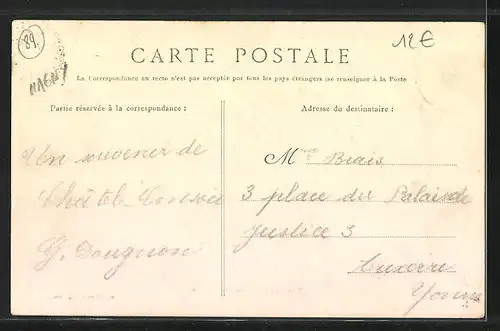 89
12€
MAGNY
CARTE POSTALE
La Correspondance au recto n'est pas acceptée par tous les pays étrangers (se renseigner à la Poste
Partie réservée à la correspondance :
Adresse du destinataire :
Un souvenir de
Châtel-Censoir
G. Dougnon
Mme Biais
3 place du Palais de
Justice 3
Auxerre
Yonne